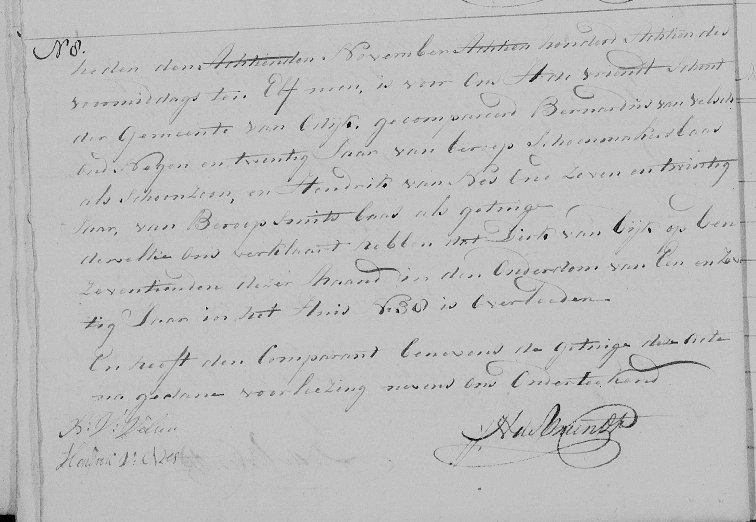 N 8.
heden den Achtienden November Achtien honderd Achtien des
voormiddags ten Elf uren, is voor Ons H de Vriendt Schout
der Gemeente van Odijk, gecompareerd Bernardus van Velsen
oud Negen en twintig Jaar van beroep Schoenmakersbaas
als Schoonzoon, en Hendrik van Nes Oud Zeven en twintig
Jaar, van Beroep Smits baas als getuige
dewelke ons verklaart hebben dat Dirk van Dijk op den
Zeventienden dezer Maand in den Ouderdom van Een en Zev
tig Jaar in het Huis No 30 is Overleeden
En heeft den Comparant benevens de getuige deze Acte
na gedane voorleezing nevens ons Onderteekend